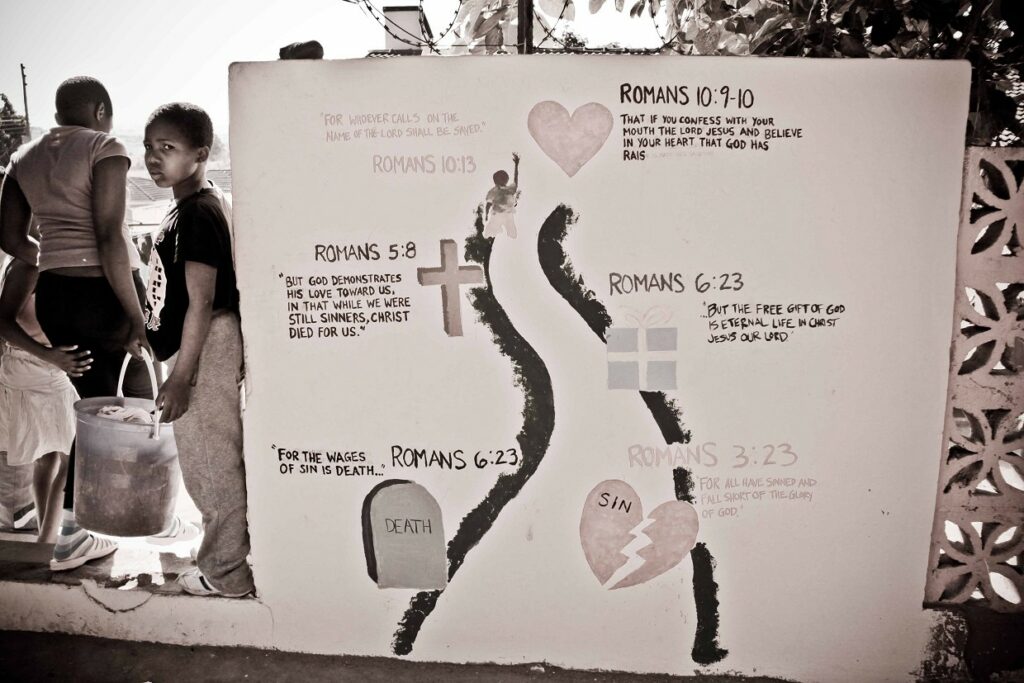 "FOR WHOEVER CALLS ON THE
NAME OF THE LORD SHALL BE SAVED."
ROMANS 10:13
ROMANS 10:9-10
THAT IF YOU CONFESS WITH YOUR
MOUTH THE LORD JESUS AND BELIEVE
IN YOUR HEART THAT GOD HAS
RAIS
ROMANS 5:8
"BUT GOD DEMONSTRATES
HIS LOVE TOWARD US,
IN THAT WHILE WE WERE
STILL SINNERS, CHRIST
DIED FOR US."
ROMANS 6:23
"..BUT THE FREE GIFT OF GOD
IS ETERNAL LIFE IN CHRIST
JESUS OUR LORD"
"FOR THE WAGES
OF SIN IS DEATH..."
ROMANS 6:23
DEATH
ROMANS 3:23
"FOR ALL HAVE SINNED AND
FALL SHORT OF THE GLORY
OF GOD."
SIN